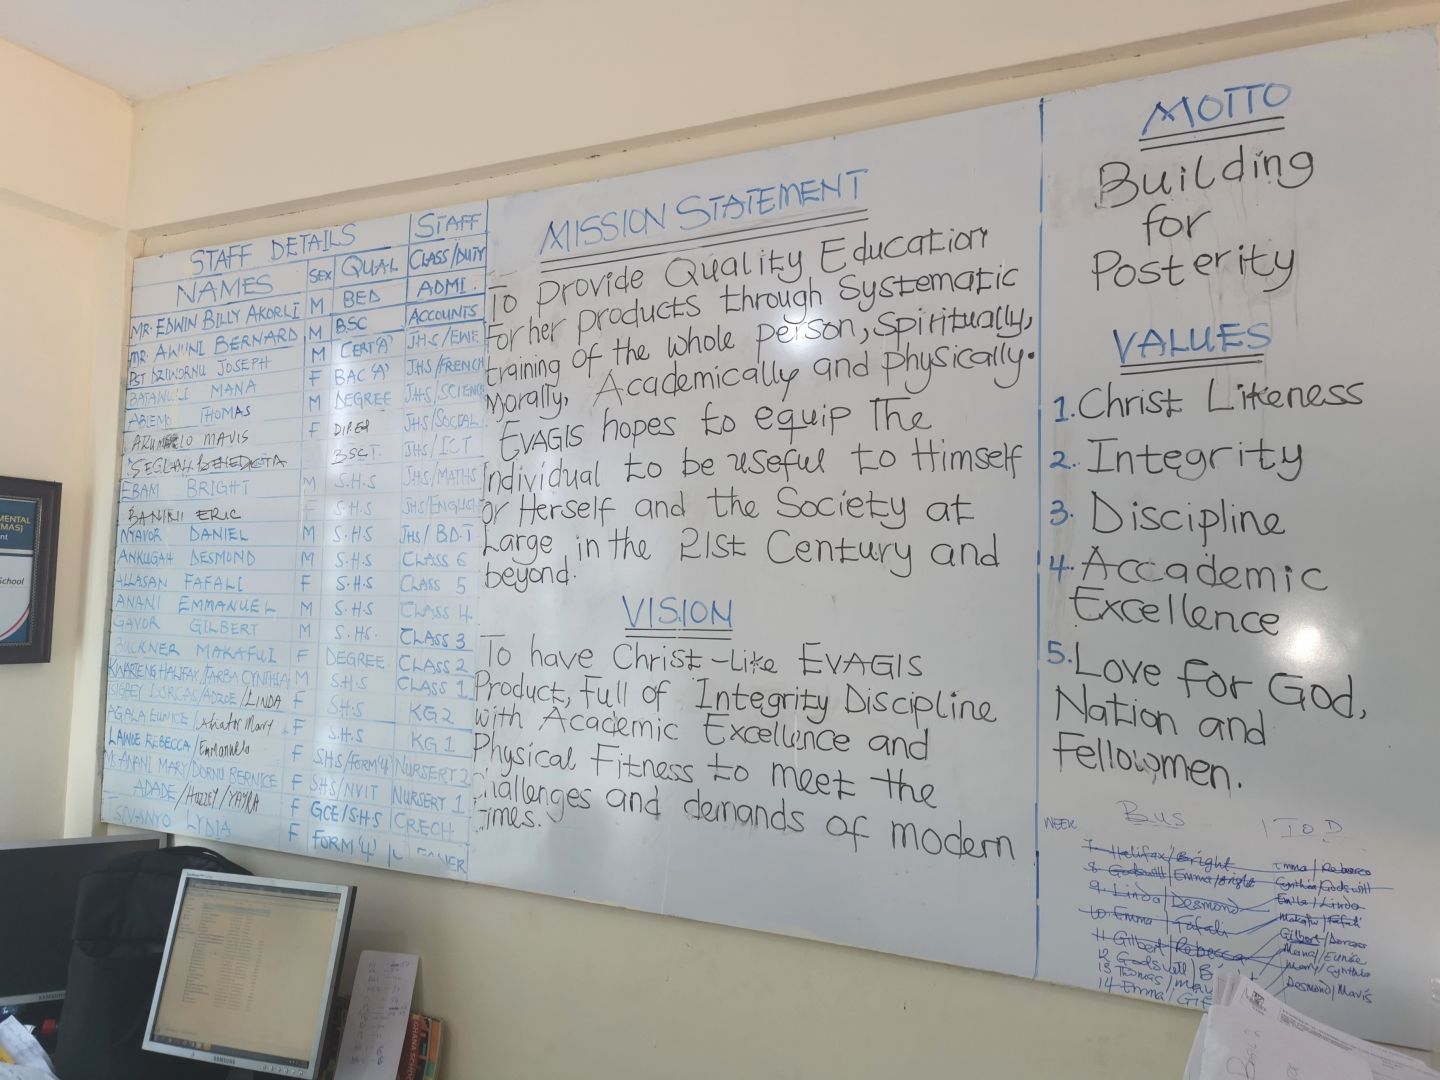 STAFF DETAILS
STAFF
NAMES
SEX
QUAL
CLASS/DUTY
MR. EDWIN BILLY AKORLI M BED ADMI.
MR. AWUNI BERNARD M BSC ACCOUNTS
PST DZIWORNU JOSEPH M CERT 'A' JHS/EWE
MANA F BAC 'A' JHS/FRENCH
THOMAS M DEGREE JHS/SCIENCE
MAVIS F DIP.ED JHS/SOCIAL
JHS/ICT
EBAM BRIGHT M S.H.S JHS/MATHS
ERIC F S.H.S JHS/ENGLISH
NYAVOR DANIEL M S.H.S JHS/BD.T
ANKUGAH DESMOND M S.H.S CLASS 6
ALLASAN FAFALI F S.H.S CLASS 5
ANANI EMMANUEL M S.H.S CLASS 4
GAVOR GILBERT M S.HS. CLASS 3
BUCKNER MAKAFUI F DEGREE CLASS 2
KWARTENG HALIFAX/TARBA CYNTHIA M S.H.S CLASS 1
DORCAS/ADZOE/LINDA F SH.S KG2
AGALA EUNICE/ Mary F S.H.S KG1
REBECCA/Emmanuela F SHS/FORM '4' NURSERY 2
ANANI MARY/DORNU BERNICE F SHS/NVIT NURSERY 1
ADADE/ /YAYRA F GCE/S.H.S CRECH
LYDIA F FORM '4'
MISSION STATEMENT
To Provide Quality Education
For her products through Systematic
training of the whole person, Spiritually,
Morally, Academically and physically.
EVAGIS hopes to equip The
individual to be useful to Himself
or Herself and the Society at
Large in the 21st Century and
beyond.
VISION
To have Christ-Like EVAGIS
Product, Full of Integrity Discipline
with Academic Excellence and
Physical Fitness to meet the
challenges and demands of modern
times.
MOTTO
Building
for
Posterity
VALUES
1. Christ Likeness
2. Integrity
3. Discipline
4. Accademic
Excellence
5. Love for God,
Nation and
Fellowmen.
WEEK BUS T O D
7 Halifax/Bright Emma/Rebecca
8 Godswill Emma/Bright Cynthia/Godswill
9 Linda/Desmond /Linda
10 Emma/Fafali Makafui/Fafali
11 Gilbert/Rebecca Gilbert/Dorcas
12 Godswill/B Mana/Eunice
13 Thomas/ Mary/Cynthia
14 Emma/ Desmond/Mavis
SAMSUNG
GHANA SCHOOL
School